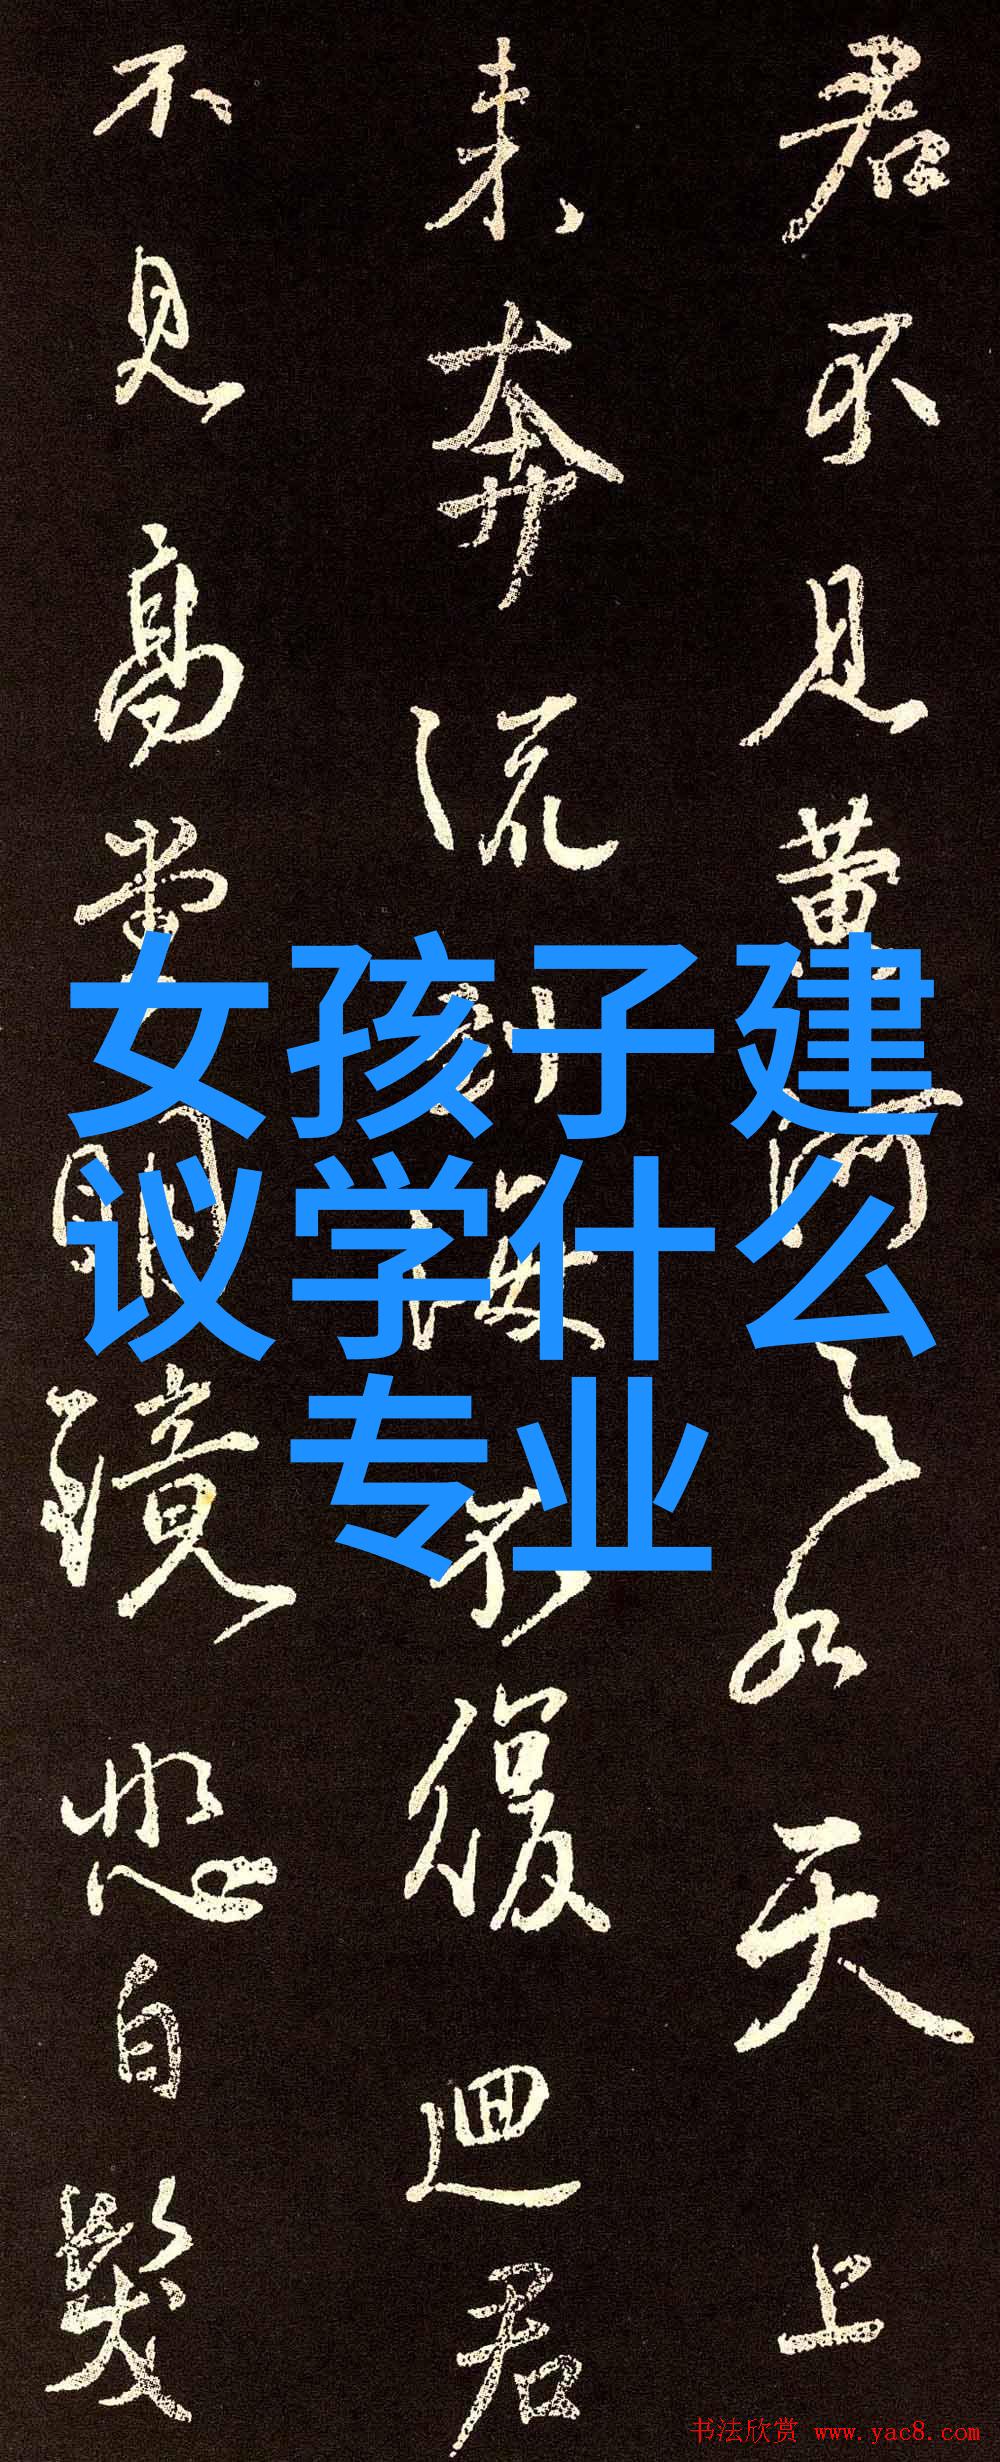 君不见黄河之水天上
来奔流到海不复迴君
不见高堂明镜悲白发
女孩子建
议学什么
专业
书法欣赏 www.yac8.com